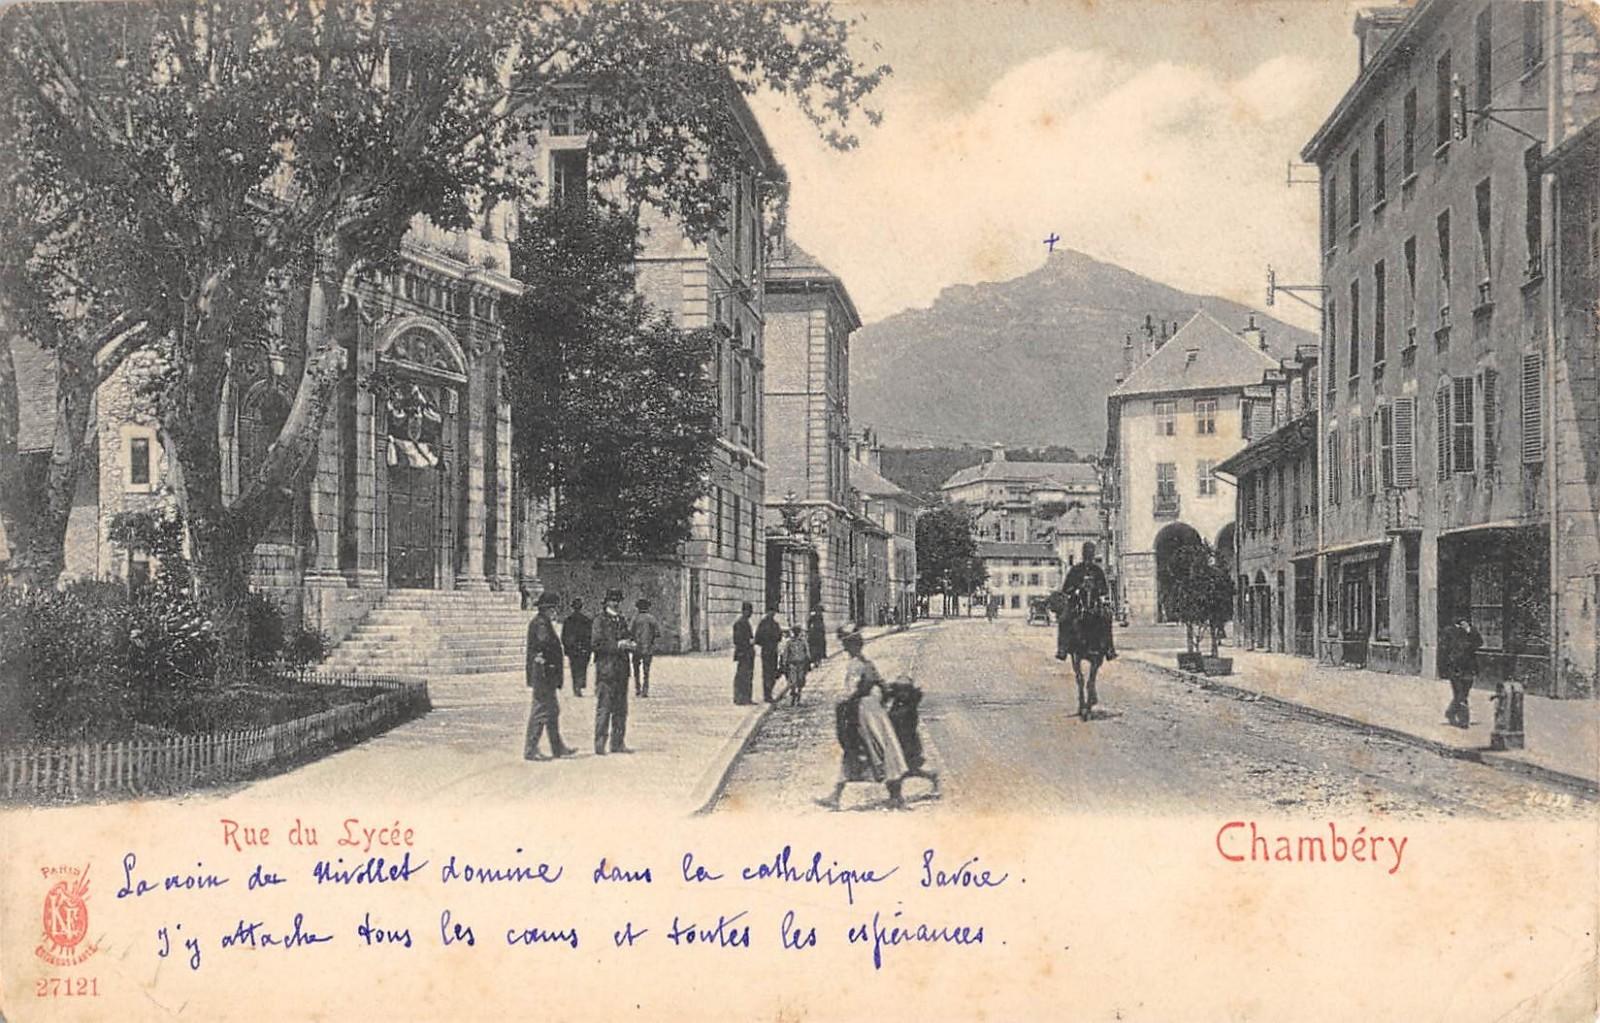 Rue du Lycée
Chambéry
La croix du Nivollet domine dans la catholique Savoie.
J'y attache tous les cœurs et toutes les espérances.
PARIS
27121